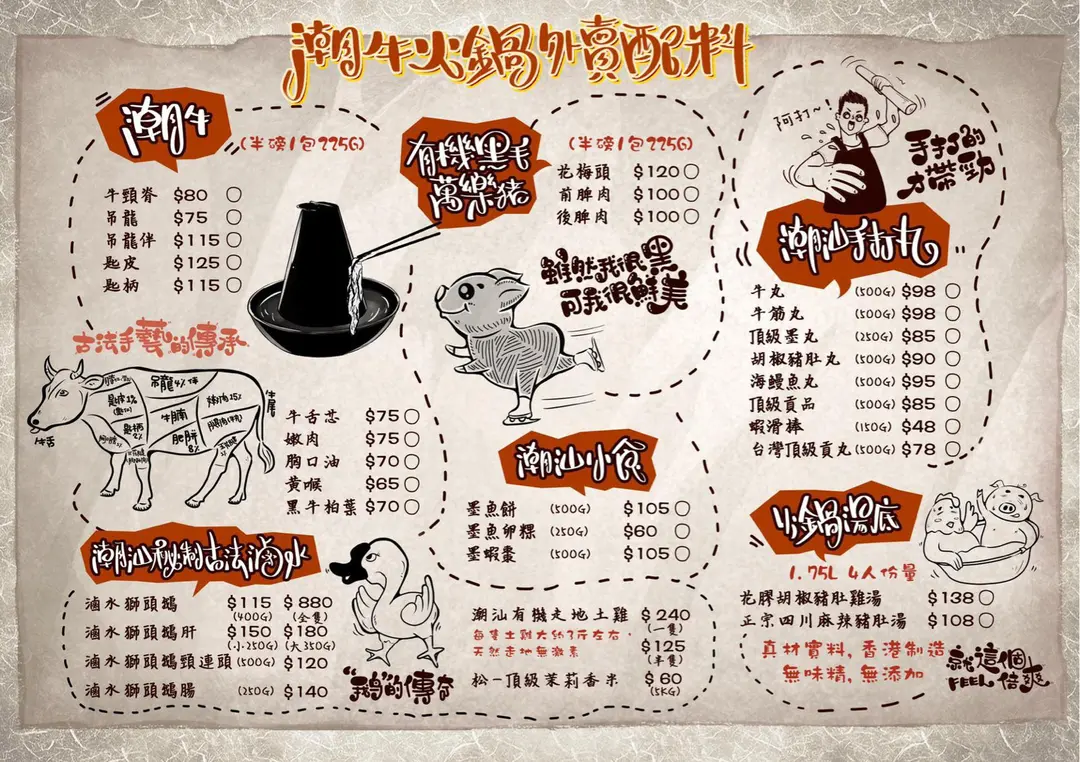 潮牛火鍋外賣配料
潮牛
(半磅/包225G)
牛頸脊 $80
吊龍 $75
吊龍伴 $115
匙皮 $125
匙柄 $115
古法手藝的傳承
吊龍4%
牛腩
匙柄
牛舌
牛尾
牛舌芯 $75
嫩肉 $75
胸口油 $70
黃喉 $65
黑牛柏葉 $70
有機黑毛
萬樂豬
(半磅/包225G)
花梅頭 $120
前脾肉 $100
後脾肉 $100
雖然我很黑
可我很鮮美
潮汕小食
墨魚餅 (500G) $105
墨魚卵粿 (250G) $60
墨蝦棗 (500G) $105
阿打~!
手打的
才帶勁
潮汕手打丸
牛丸 (500G) $98
牛筋丸 (500G) $98
頂級墨丸 (250G) $85
胡椒豬肚丸 (500G) $90
海鰻魚丸 (500G) $95
頂級貢品 (500G) $85
蝦滑棒 (150G) $48
台灣頂級貢丸 (500G) $78
潮汕秘制古法滷水
滷水獅頭鵝 $115 $880
(400G) (全隻)
滷水獅頭鵝肝 $150 $180
(小250G) (大350G)
滷水獅頭鵝頸連頭 (500G) $120
滷水獅頭鵝腸 (250G) $140
"鵝"的傳奇
潮汕有機走地土雞 $240
(一隻)
每隻土雞大約3斤左右,
天然走地無激素
$125
(半隻)
松一頂級茉莉香米 $60
(5KG)
火鍋湯底
1.75L 4人份量
花膠胡椒豬肚雞湯 $138
正宗四川麻辣豬肚湯 $108
真材實料, 香港制造
無味精, 無添加
就這個
FEEL 倍爽